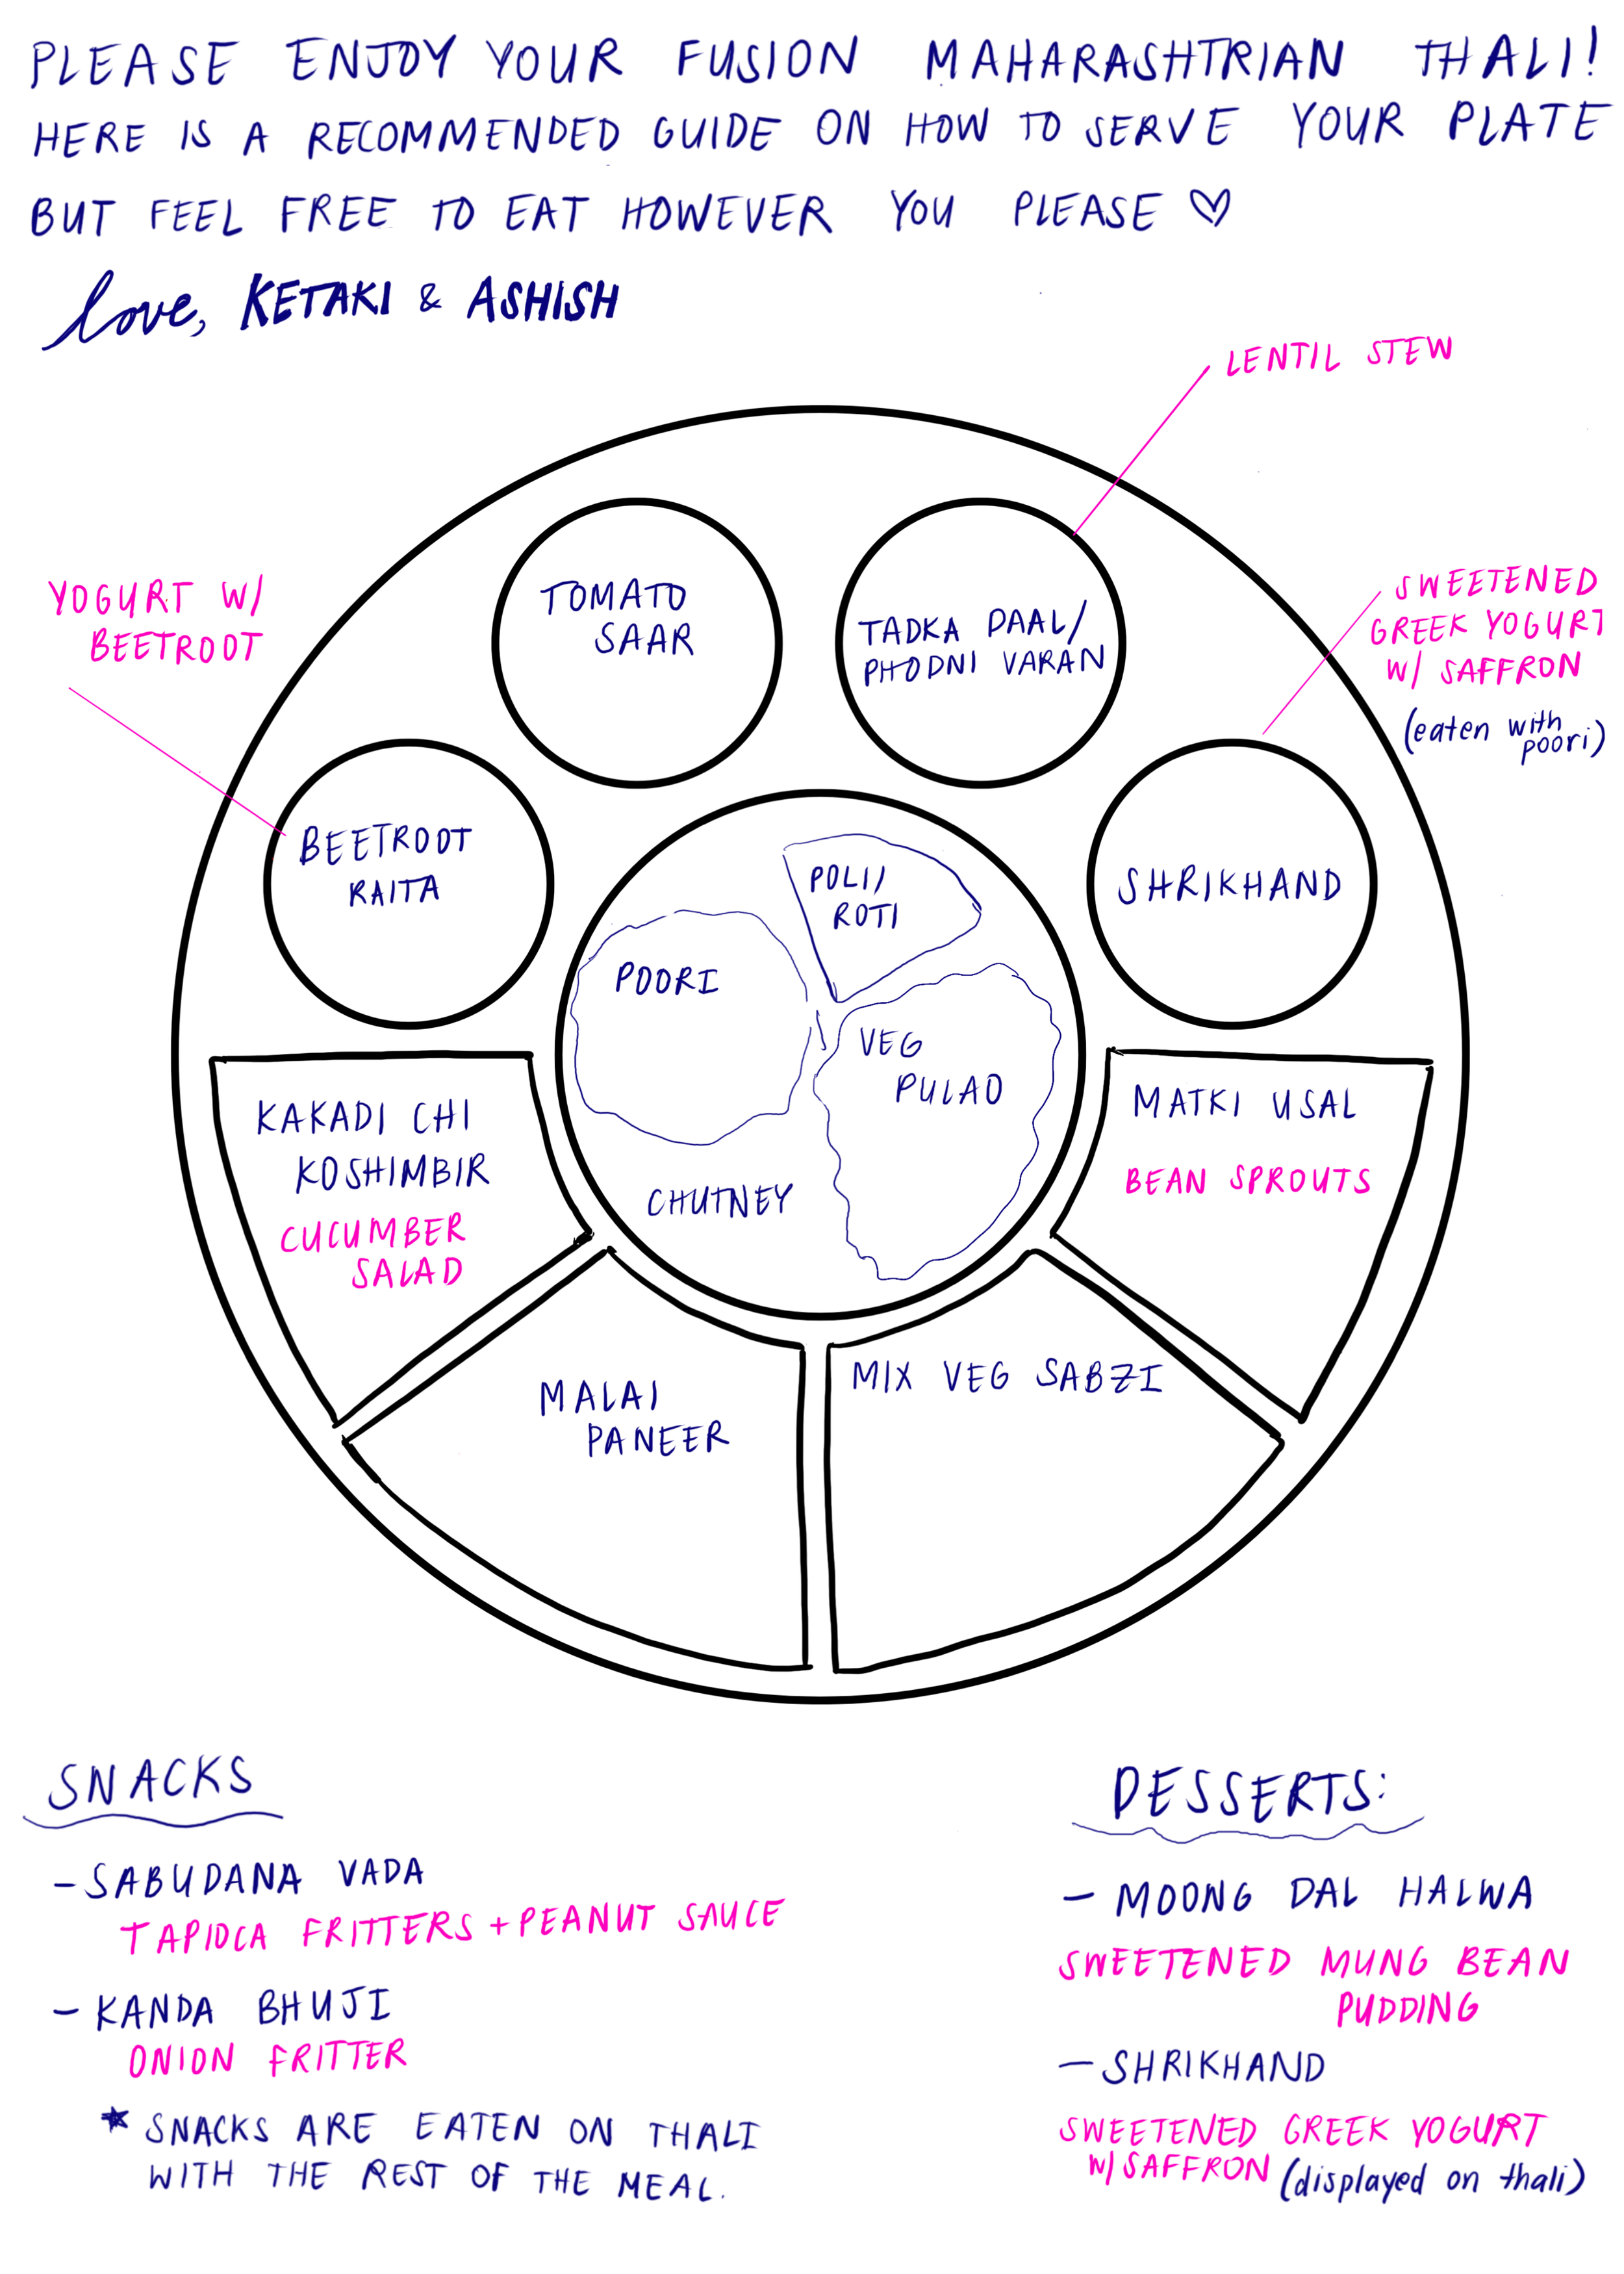 PLEASE ENJOY YOUR FUSION MAHARASHTRIAN THALI!
HERE IS A RECOMMENDED GUIDE ON HOW TO SERVE YOUR PLATE
BUT FEEL FREE TO EAT HOWEVER YOU PLEASE ♡
love, KETAKI & ASHISH
LENTIL STEW
YOGURT W/
BEETROOT
TOMATO
SAAR
TADKA DAAL/
PHODNI VARAN
SWEETENED
GREEK YOGURT
W/ SAFFRON
(eaten with
poori)
BEETROOT
RAITA
SHRIKHAND
POLI/
ROTI
POORI
VEG
PULAO
CHUTNEY
KAKADI CHI
KOSHIMBIR
CUCUMBER
SALAD
MATKI USAL
BEAN SPROUTS
MALAI
PANEER
MIX VEG SABZI
SNACKS
- SABUDANA VADA
TAPIOCA FRITTERS + PEANUT SAUCE
- KANDA BHUJI
ONION FRITTER
★ SNACKS ARE EATEN ON THALI
WITH THE REST OF THE MEAL.
DESSERTS:
- MOONG DAL HALWA
SWEETENED MUNG BEAN
PUDDING
- SHRIKHAND
SWEETENED GREEK YOGURT
W/ SAFFRON (displayed on thali)